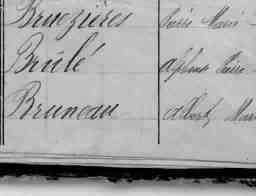 Bruezières Pierre Marie
Brûlé Alphonse Pierre
Bruneau Albert